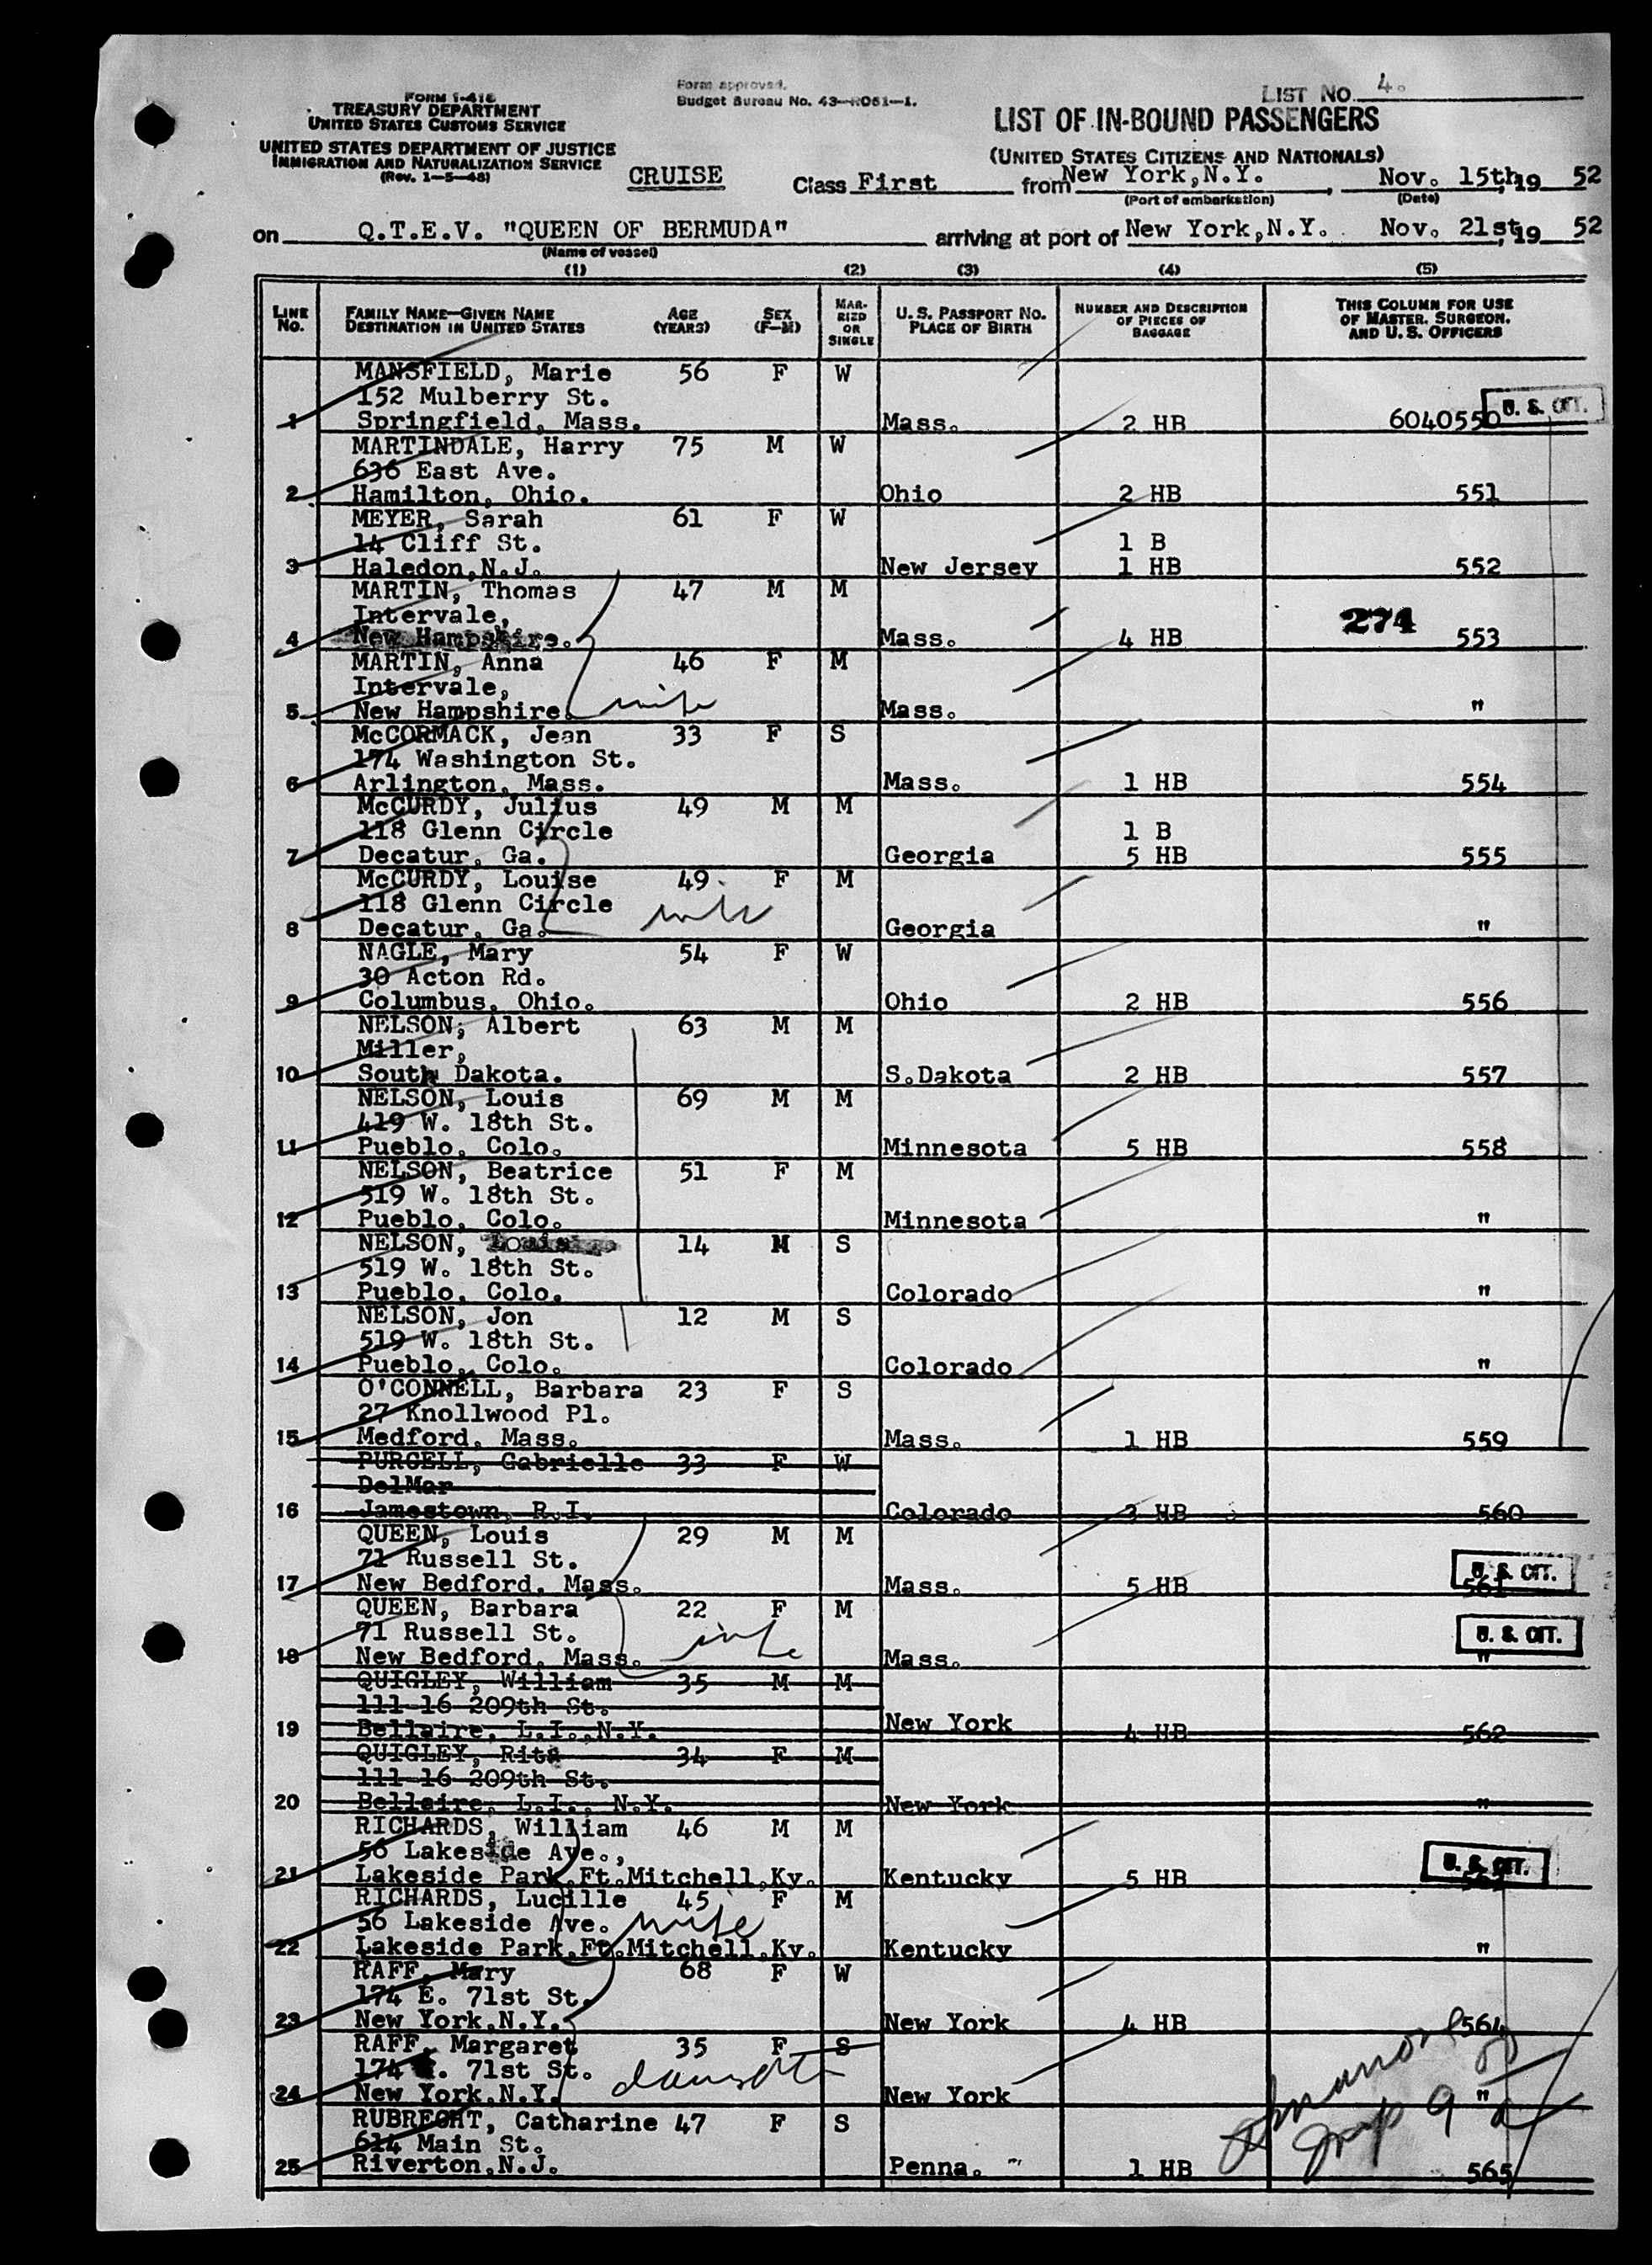 FORM I-418
TREASURY DEPARTMENT
UNITED STATES CUSTOMS SERVICE
UNITED STATES DEPARTMENT OF JUSTICE
IMMIGRATION AND NATURALIZATION SERVICE
(Rev. 1-5-48)
Form approved.
Budget Bureau No. 43-R061-1.
LIST NO. 4.
LIST OF IN-BOUND PASSENGERS
(UNITED STATES CITIZENS AND NATIONALS)
CRUISE Class First from New York,N.Y., Nov. 15th,19 52
(Port of embarkation) (Date)
on Q.T.E.V. "QUEEN OF BERMUDA" arriving at port of New York,N.Y. Nov. 21st,19 52
(Name of vessel)
(1) (2) (3) (4) (5)
LINE No. FAMILY NAME—GIVEN NAME DESTINATION IN UNITED STATES AGE (YEARS) SEX (F—M) MARRIED OR SINGLE U. S. PASSPORT NO. PLACE OF BIRTH NUMBER AND DESCRIPTION OF PIECES OF BAGGAGE THIS COLUMN FOR USE OF MASTER, SURGEON, AND U. S. OFFICERS
MANSFIELD, Marie 56 F W
152 Mulberry St.
1 Springfield, Mass. Mass. 2 HB 6040550 U. S. CIT.
MARTINDALE, Harry 75 M W
636 East Ave.
2 Hamilton, Ohio. Ohio 2 HB 551
MEYER, Sarah 61 F W
14 Cliff St. 1 B
3 Haledon,N.J. New Jersey 1 HB 552
MARTIN, Thomas 47 M M
Intervale, 274
4 New Hampshire. Mass. 4 HB 553
MARTIN, Anna 46 F M
Intervale,
5 New Hampshire. wife Mass. "
McCORMACK, Jean 33 F S
174 Washington St.
6 Arlington, Mass. Mass. 1 HB 554
McCURDY, Julius 49 M M
118 Glenn Circle 1 B
7 Decatur, Ga. Georgia 5 HB 555
McCURDY, Louise 49 F M
118 Glenn Circle wife
8 Decatur, Ga. Georgia "
NAGLE, Mary 54 F W
30 Acton Rd.
9 Columbus, Ohio. Ohio 2 HB 556
NELSON, Albert 63 M M
Miller,
10 South Dakota. S.Dakota 2 HB 557
NELSON, Louis 69 M M
419 W. 18th St.
11 Pueblo, Colo. Minnesota 5 HB 558
NELSON, Beatrice 51 F M
519 W. 18th St.
12 Pueblo, Colo. Minnesota "
NELSON, Louis 14 M S
519 W. 18th St.
13 Pueblo, Colo. Colorado "
NELSON, Jon 12 M S
519 W. 18th St.
14 Pueblo, Colo. Colorado "
O'CONNELL, Barbara 23 F S
27 Knollwood Pl.
15 Medford, Mass. Mass. 1 HB 559
PURCELL, Gabrielle 33 F W
DelMar
16 Jamestown, R.I. Colorado 3 HB 560
QUEEN, Louis 29 M M
71 Russell St.
17 New Bedford, Mass. Mass. 5 HB 561 U. S. CIT.
QUEEN, Barbara 22 F M
71 Russell St. wife U. S. CIT.
18 New Bedford, Mass. Mass. "
QUIGLEY, William 35 M M
111-16 209th St.
19 Bellaire, L.I.,N.Y. New York 4 HB 562
QUIGLEY, Rita 34 F M
111-16 209th St.
20 Bellaire, L.I., N.Y. New York "
RICHARDS, William 46 M M
56 Lakeside Ave.,
21 Lakeside Park,Ft.Mitchell,Ky. Kentucky 5 HB U. S. CIT.
RICHARDS, Lucille 45 F M
56 Lakeside Ave. wife
22 Lakeside Park,Ft.Mitchell,Ky. Kentucky "
RAFF, Mary 68 F W
174 E. 71st St.
23 New York,N.Y. New York 4 HB 564
RAFF, Margaret 35 F S
174 E. 71st St.
24 New York,N.Y. New York "
RUBRECHT, Catharine 47 F S
614 Main St.
25 Riverton,N.J. Penna. 1 HB 565